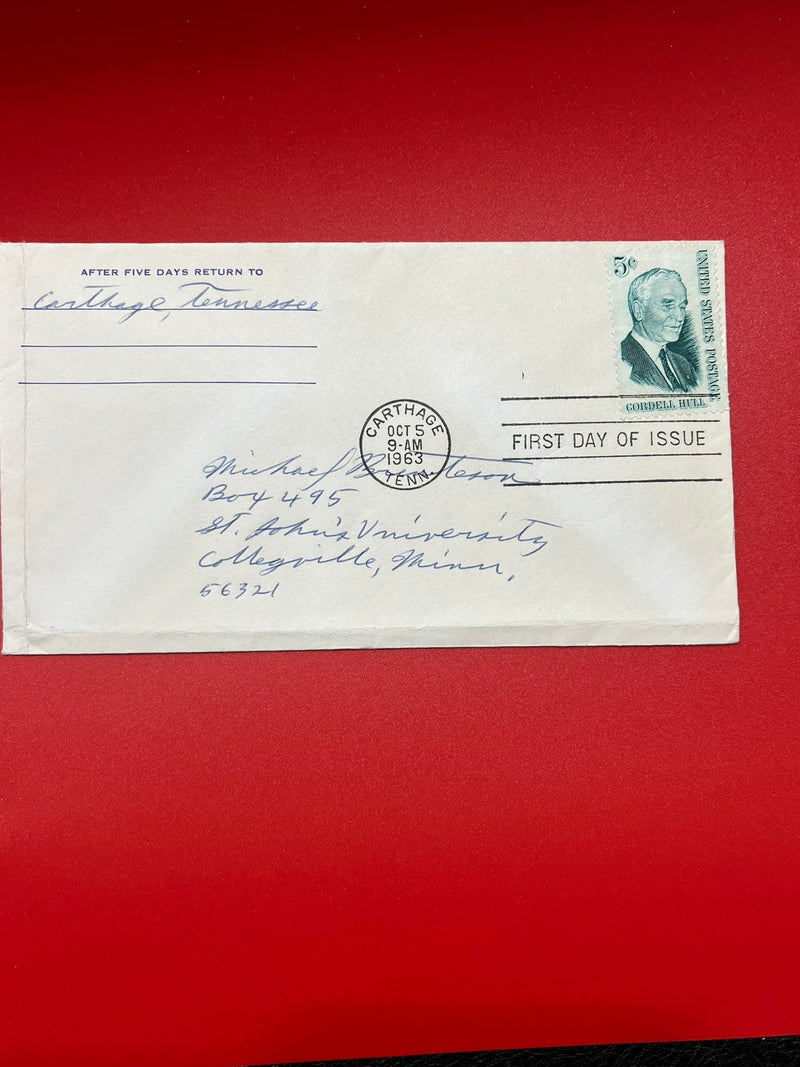 AFTER FIVE DAYS RETURN TO
Carthage, Tennessee
5¢
UNITED STATES POSTAGE
CORDELL HULL
CARTHAGE
OCT 5
9-AM
1963
TENN.
FIRST DAY OF ISSUE
Michael
Box 495
St. John's University
Collegville, Minn,
56321